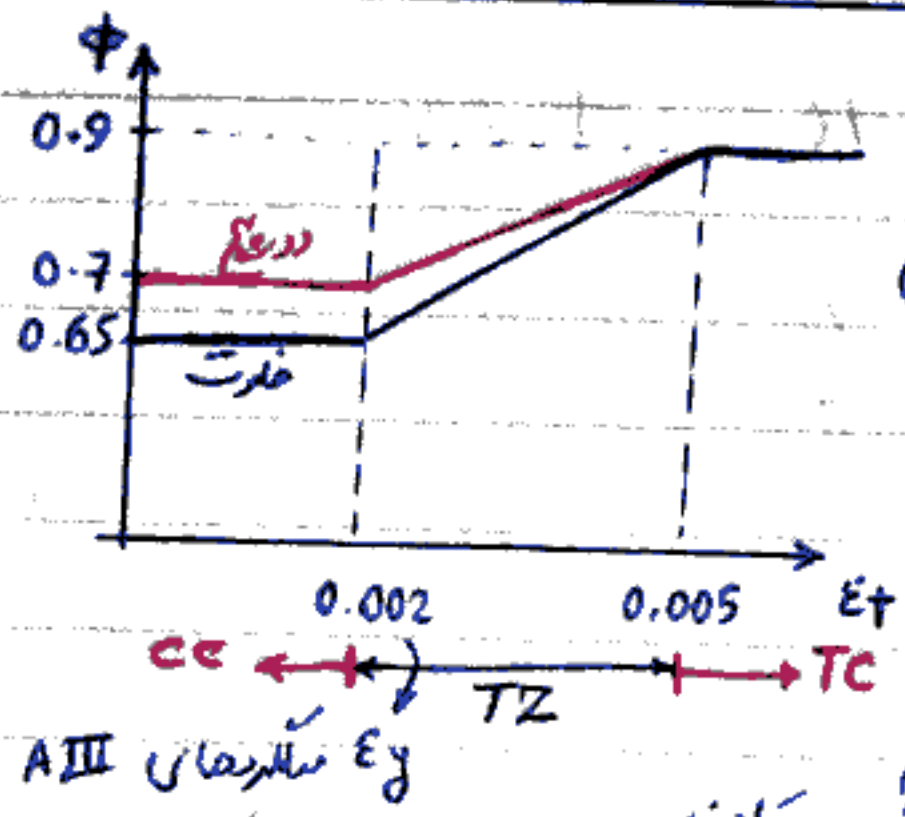 Φ
0.9
دورپیچ
0.7
0.65
خاموت
0.002 0.005 εt
CC TZ TC
εy میلگردهای AIII